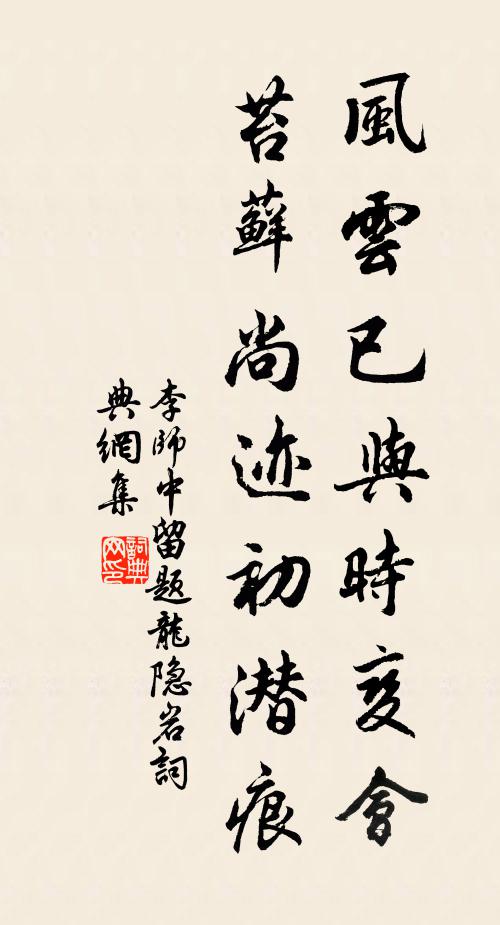 風雲已與時变會
苔蘚尚迹初潜痕
李師中留题龍隐岩詞
典網集
詞典
网印